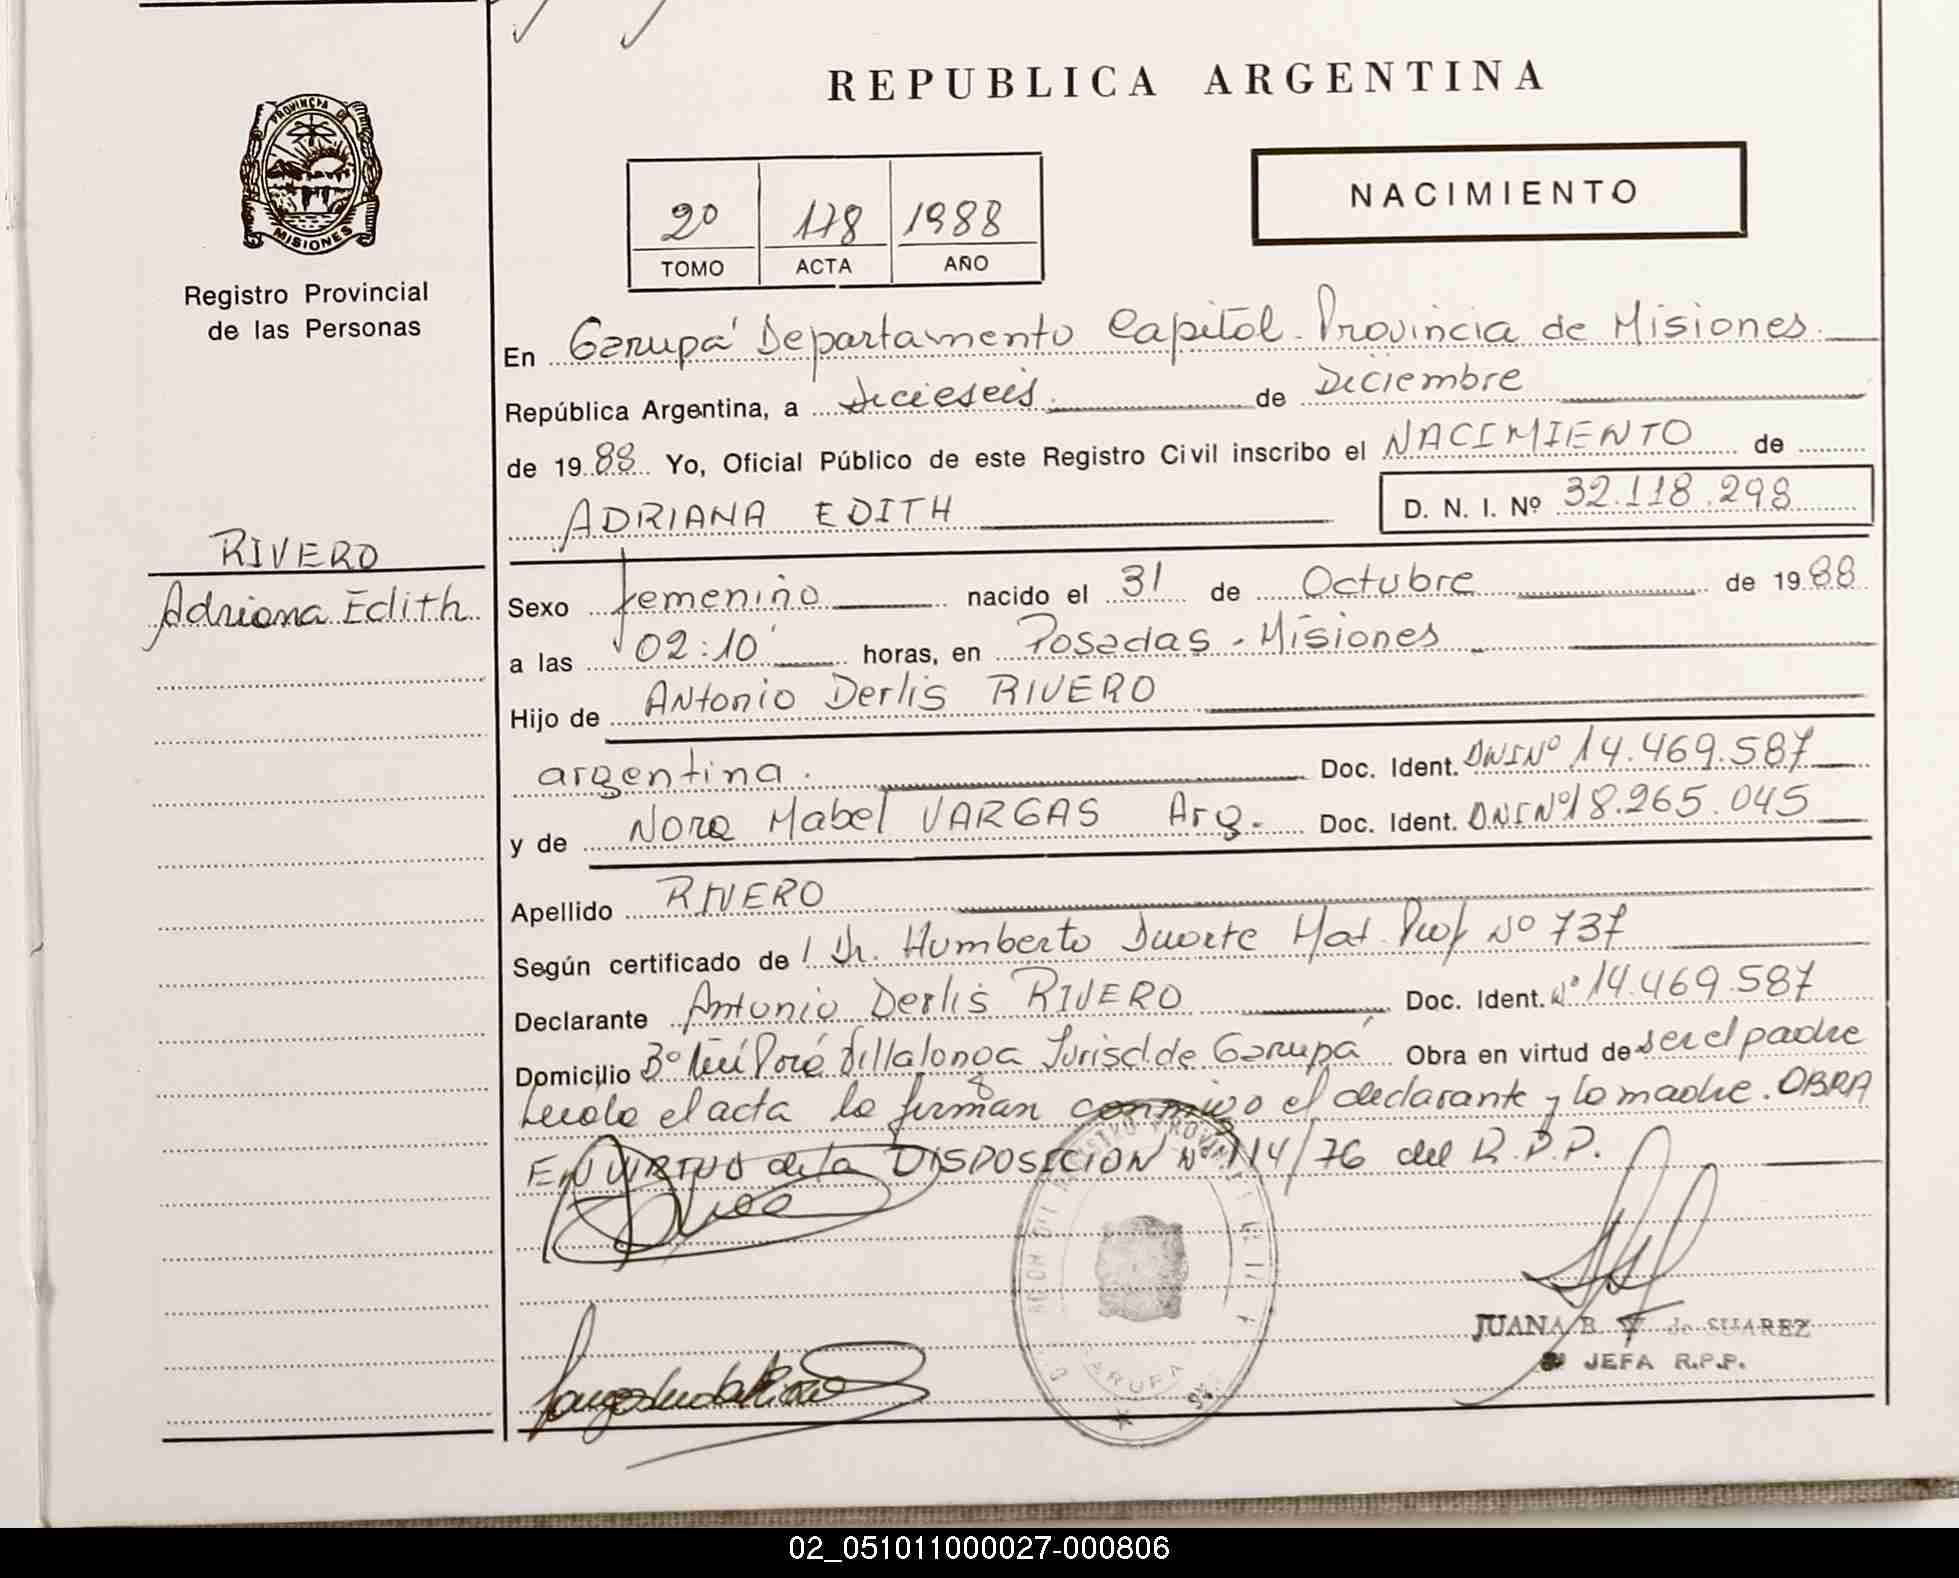 REPUBLICA ARGENTINA
PROVINCIA DE
MISIONES
Registro Provincial
de las Personas
2º 178 1988
TOMO ACTA AÑO
NACIMIENTO
En Garupá Departamento Capital - Provincia de Misiones.
República Argentina, a dicieseis. de Diciembre
de 1988 Yo, Oficial Público de este Registro Civil inscribo el NACIMIENTO de
ADRIANA EDITH D. N. I. Nº 32.118.298
RIVERO
Adriana Edith
Sexo femenino nacido el 31 de Octubre de 1988
a las 02:10' horas, en Posadas - Misiones
Hijo de Antonio Derlis RIVERO
argentina. Doc. Ident. DNI Nº 14.469.587
y de Nora Mabel VARGAS Arg. Doc. Ident. DNI Nº 18.265.045
Apellido RIVERO
Según certificado de l Dr. Humberto Duarte Mat. Prof Nº 737
Declarante Antonio Derlis RIVERO Doc. Ident. Nº 14.469.587
Domicilio Bº Porá Villalonga Jurisd. de Garupá Obra en virtud de ser el padre
Leída el acta la firman conmigo el declarante y la madre. OBRA
EN VIRTUD de la DISPOSICION Nº 114/76 del R.P.P.
GARUPA
JUANA B. de SUAREZ
JEFA R.P.P.
02_051011000027-000806